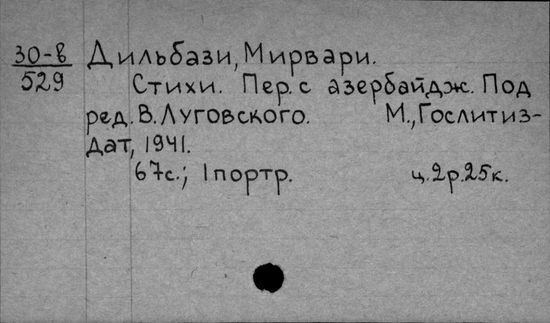 30-в Дильбази, Мирвари.
529 Стихи. Пер. с азербайдж. Под
ред. В. Луговского. М., Гослитиз-
дат, 1941.
67с.; 1 портр. ц. 2р. 25к.